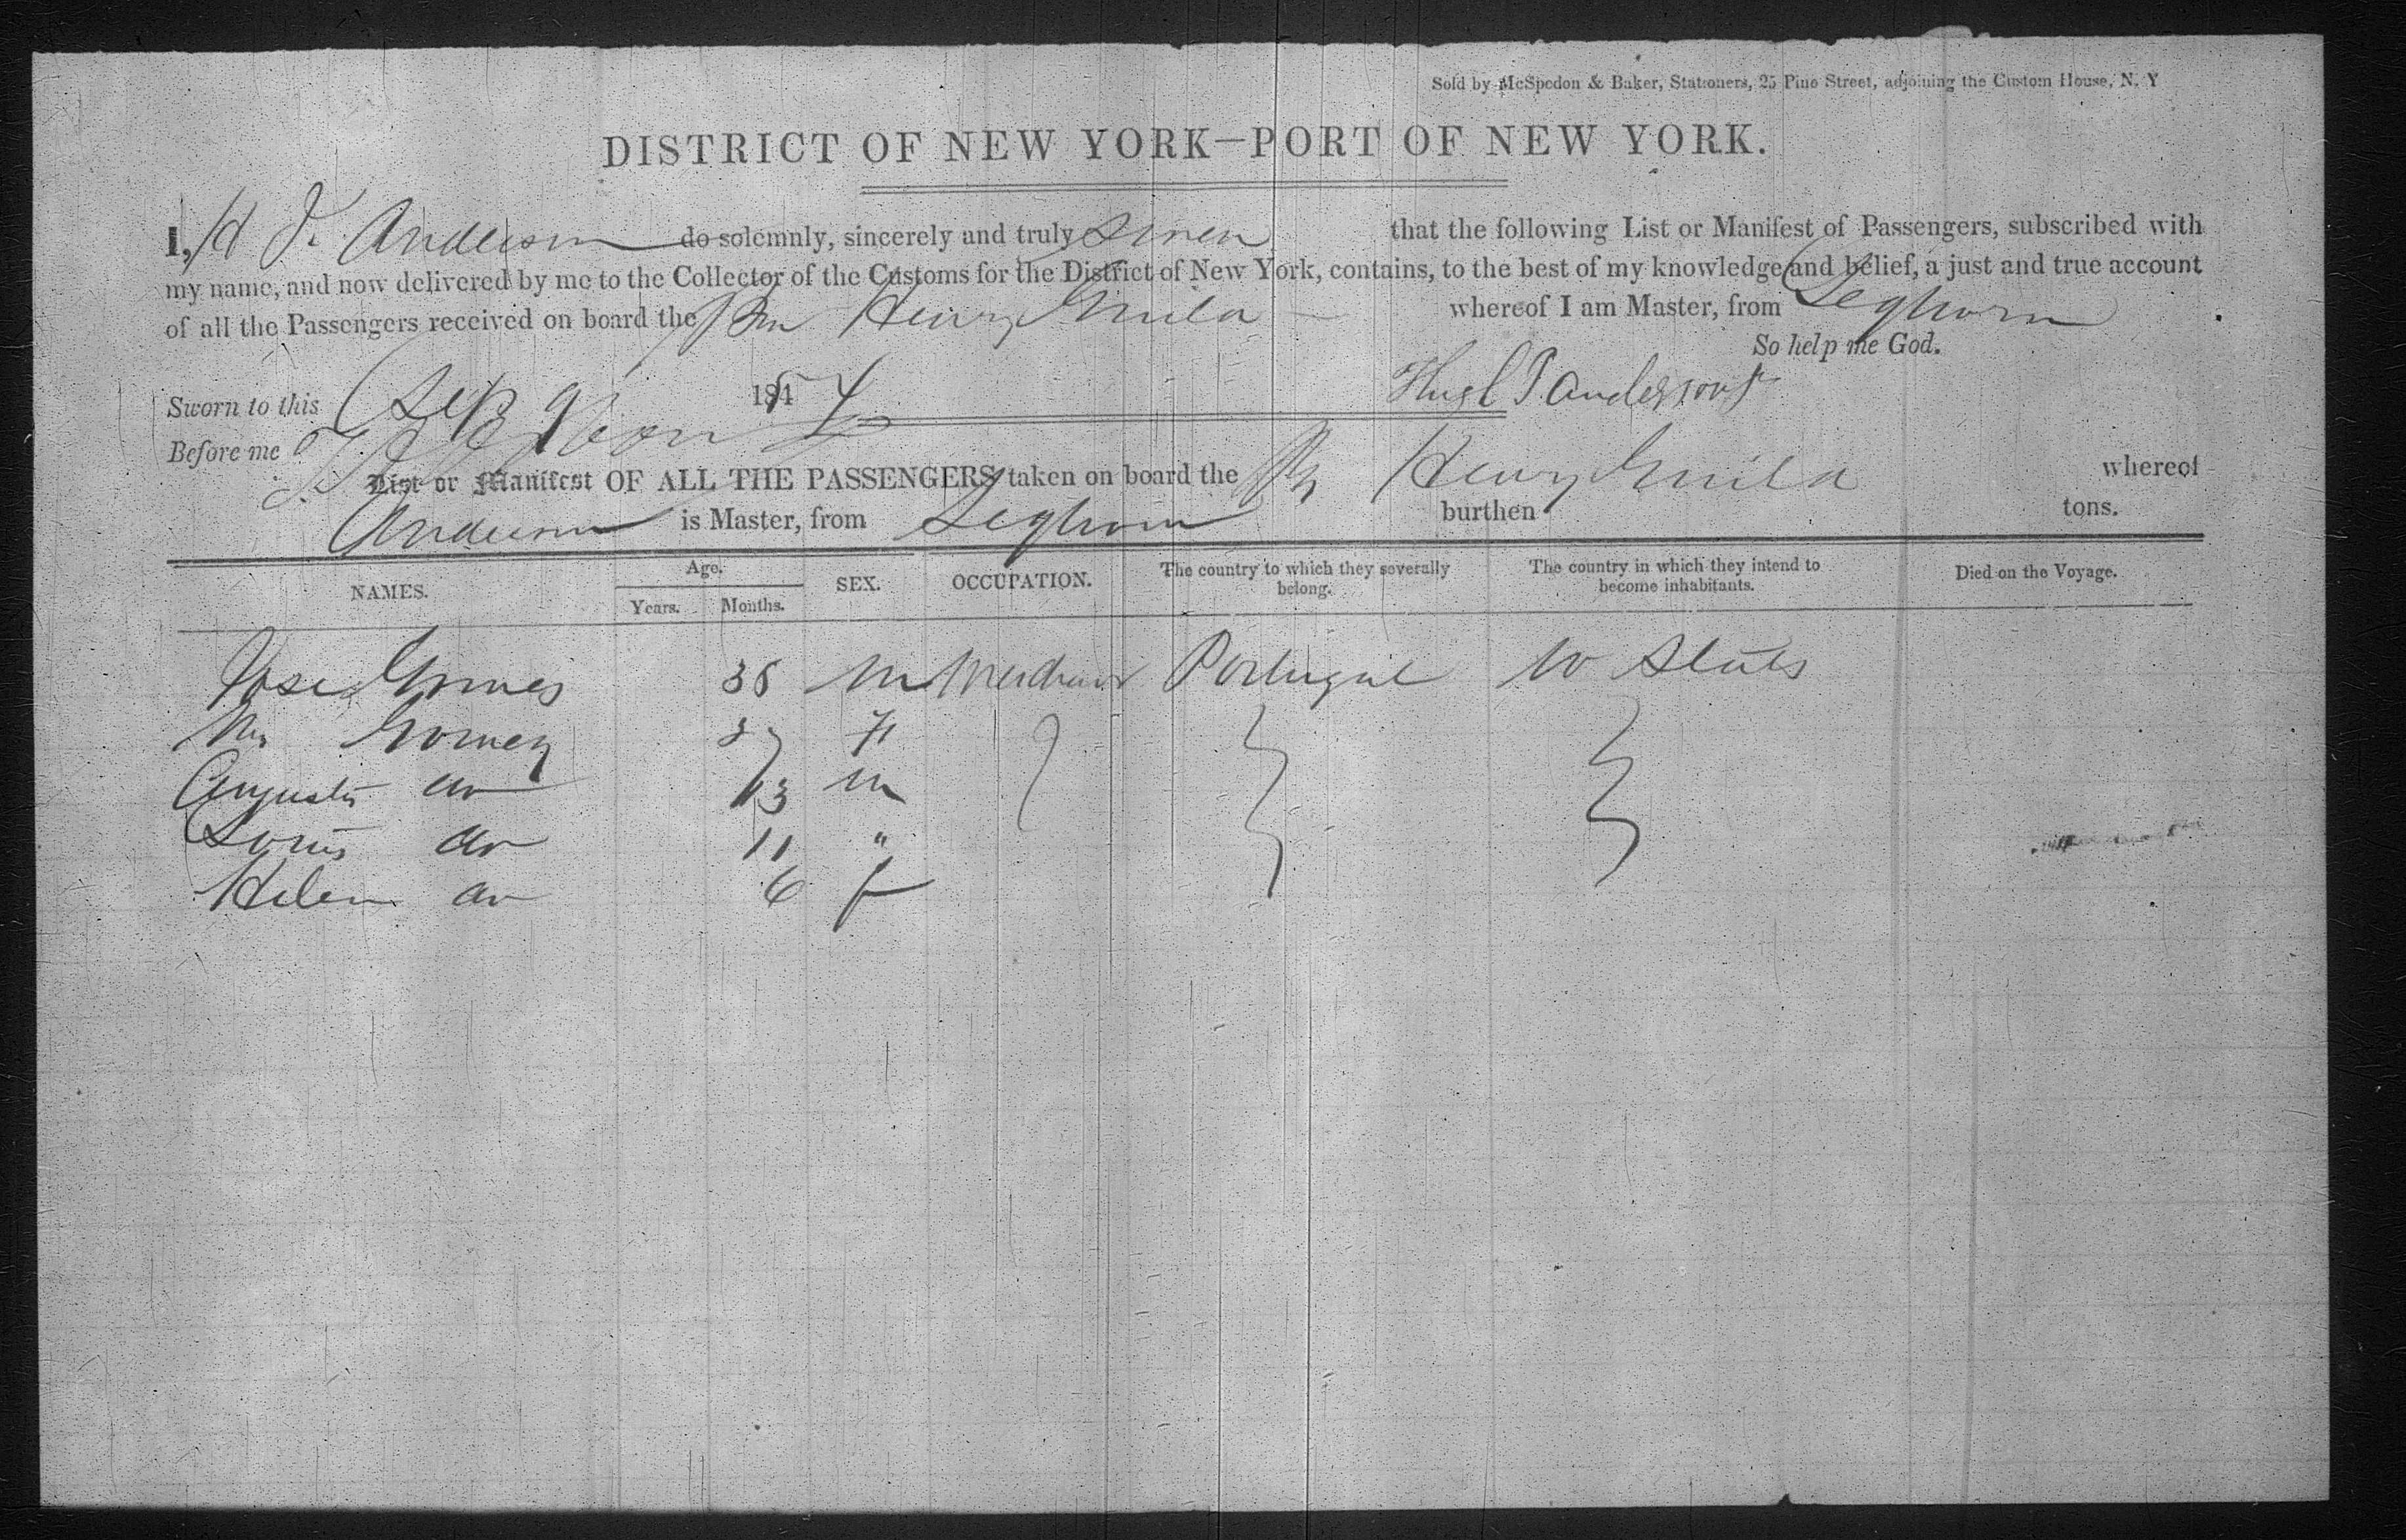 Sold by McSpedon & Baker, Stationers, 25 Pine Street, adjoining the Custom House, N. Y
DISTRICT OF NEW YORK—PORT OF NEW YORK.
I, H J. Anderson do solemnly, sincerely and truly swear that the following List or Manifest of Passengers, subscribed with
my name, and now delivered by me to the Collector of the Customs for the District of New York, contains, to the best of my knowledge and belief, a just and true account
of all the Passengers received on board the Henry whereof I am Master, from Leghorn
So help me God.
Sworn to this Sep 9 1854 Hugh Anderson
Before me
List or Manifest OF ALL THE PASSENGERS taken on board the Henry whereof
Anderson is Master, from Leghorn burthen tons.
NAMES. Age. Years. Months. SEX. OCCUPATION. The country to which they severally belong. The country in which they intend to become inhabitants. Died on the Voyage.
Jose Gomes 38 M Merchant Portugal States
Mrs Gomez 37 F
Augustus do 13 m
Louis do 11 "
Helen do 6 f